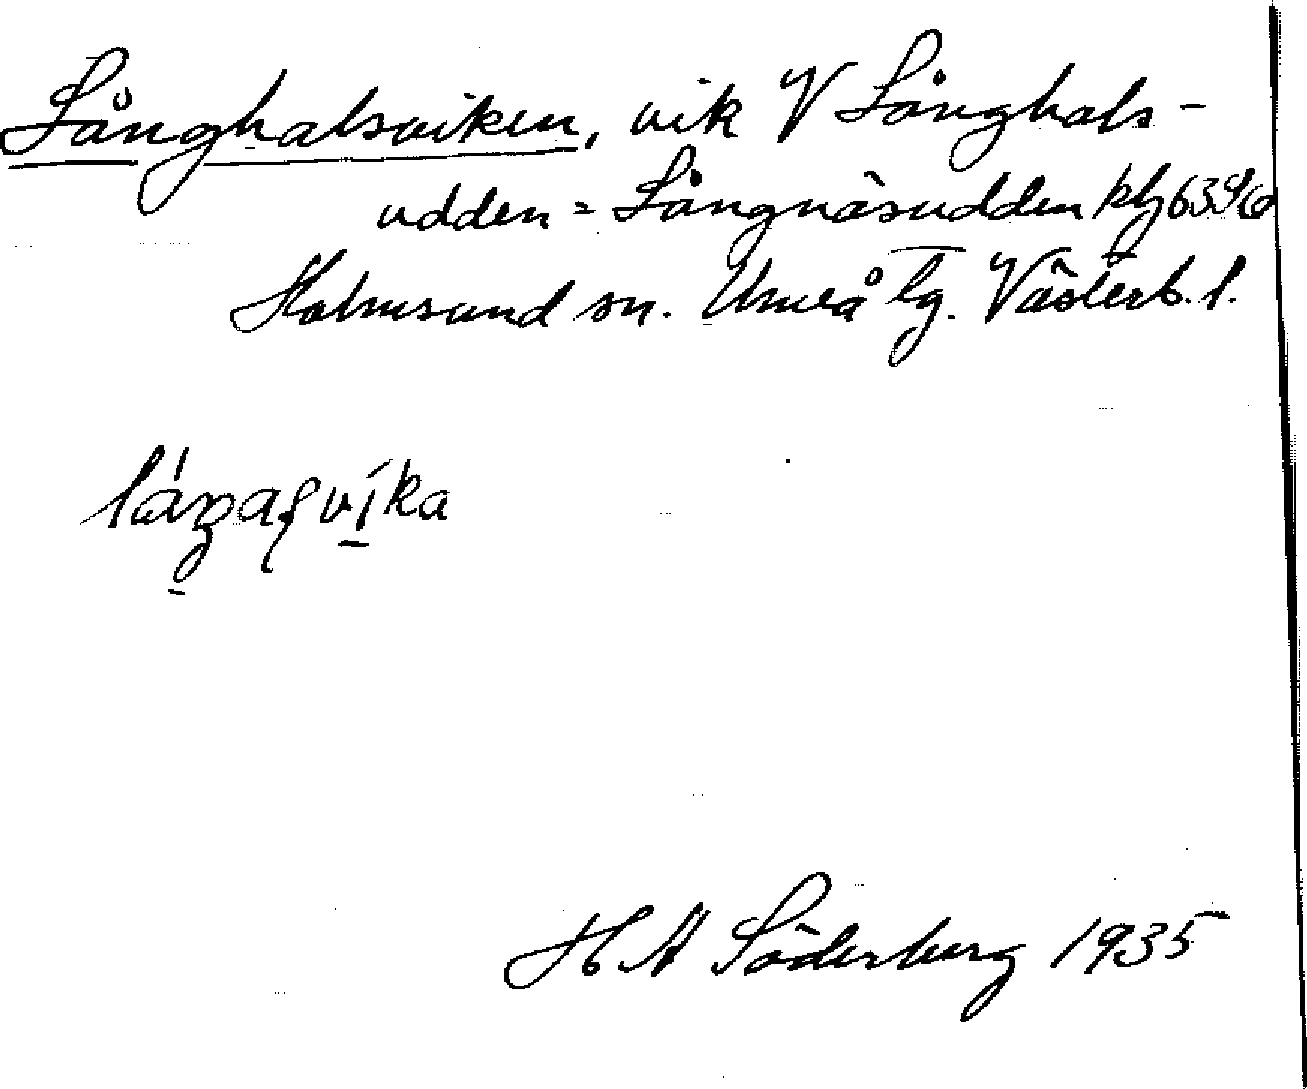 Långhalsviken, vik V Långhals-
udden = Långnäsudden kbl 6396
Holmsund sn. Umeå tg. Västerb. l.
H A Söderberg 1935